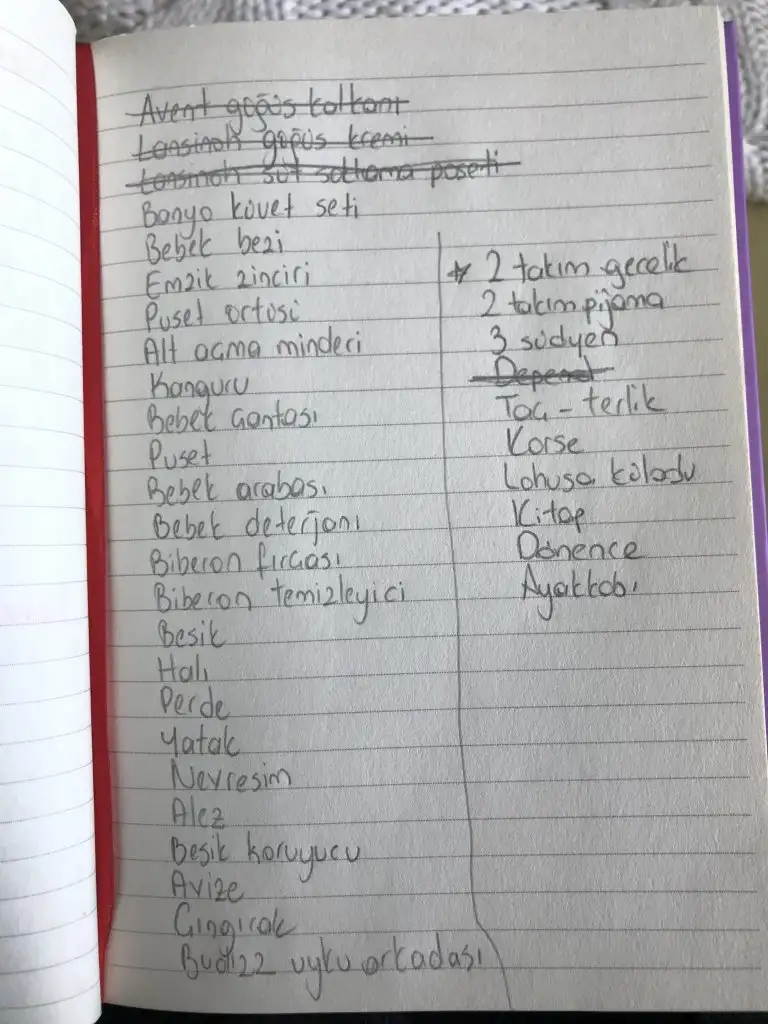 Avent göğüs kalkanı
Lansinoh göğüs kremi
Lansinoh süt saklama poşeti
Banyo küvet seti
Bebek bezi
Emzik zinciri
Puset örtüsü
Alt açma minderi
Kanguru
Bebek çantası
Puset
Bebek arabası
Bebek deterjanı
Biberon fırçası
Biberon temizleyici
Beşik
Halı
Perde
Yatak
Nevresim
Alez
Beşik koruyucu
Avize
Çıngırak
Budizz uyku arkadaşı
* 2 takım gecelik
2 takım pijama
3 südyen
Depend
Taç - terlik
Korse
Lohusa külodu
Kitap
Dönence
Ayakkabı